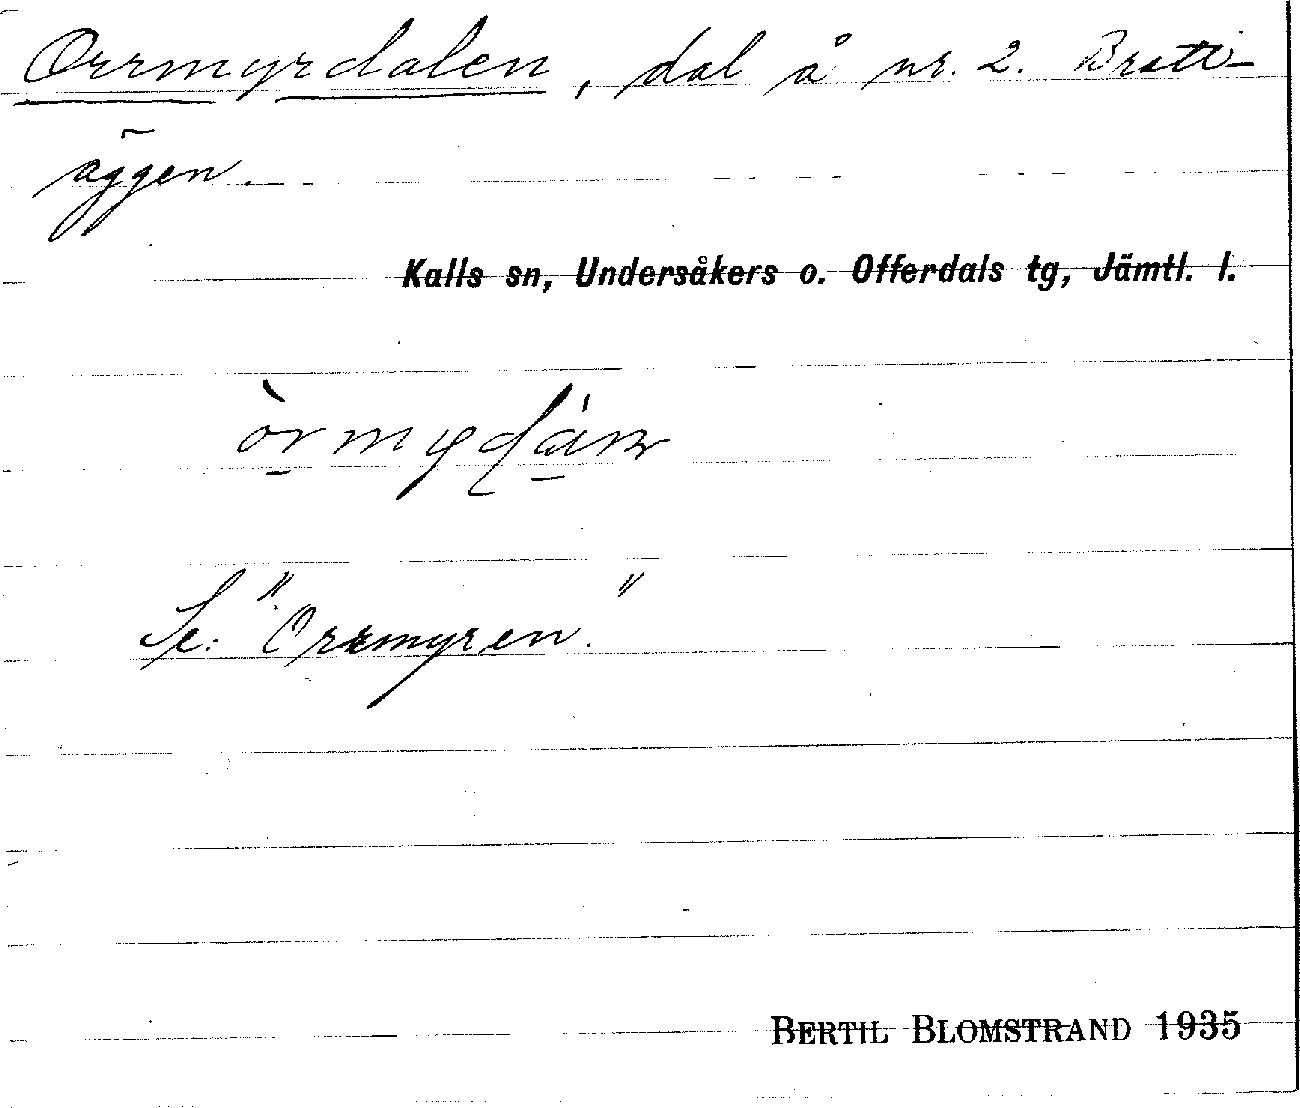 Orrmyrdalen, dal å nr. 2. Bratt-
äggen.
Kalls sn, Undersåkers o. Offerdals tg, Jämtl. l.
Se: "Orrmyren."
BERTIL BLOMSTRAND 1935